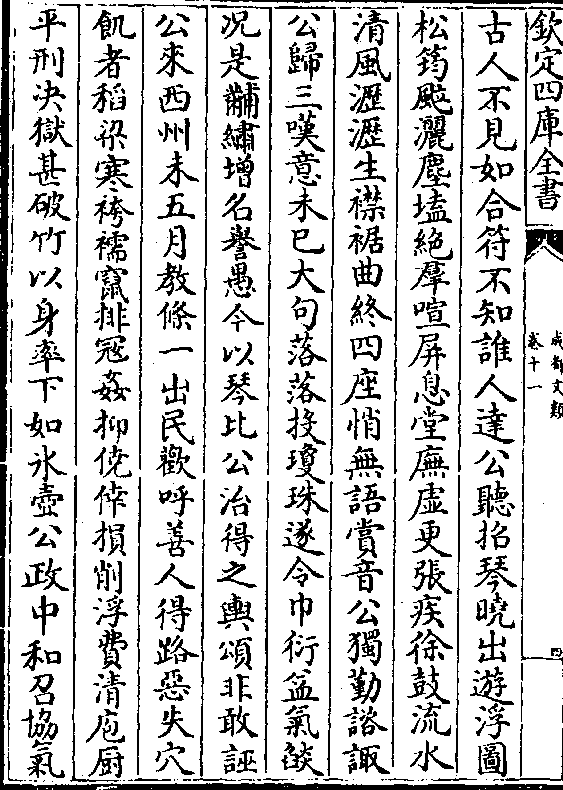 欽定四庫全書
成都文類
卷十一
古人不見如合符不知誰人達公聽招琴曉出遊浮圖
松筠颼灑塵壒絶羣喧屏息堂廡虚更張疾徐鼓流水
清風瀝瀝生襟裾曲終四座悄無語賞音公獨勤諮諏
公歸三嘆意未已大句落落投瓊珠遂令巾衍盆氣燄
况是黼繡增名譽愚今以琴比公治得之輿頌非敢誣
公來西州未五月教條一出民歡呼善人得路惡失穴
飢者稻梁寒袴襦竄排冠姦抑僥倖損削浮費清庖厨
平刑决獄甚破竹以身率下如氷壺公政中和召協氣